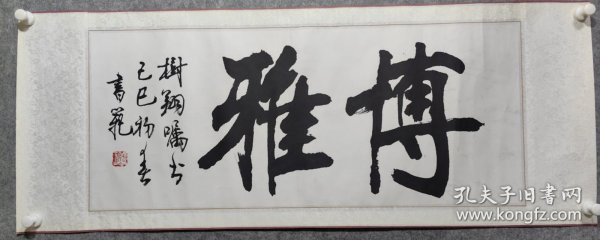 博雅
樹翔囑书
己巳初春
書範
孔夫子旧书网
www.kongfz.com